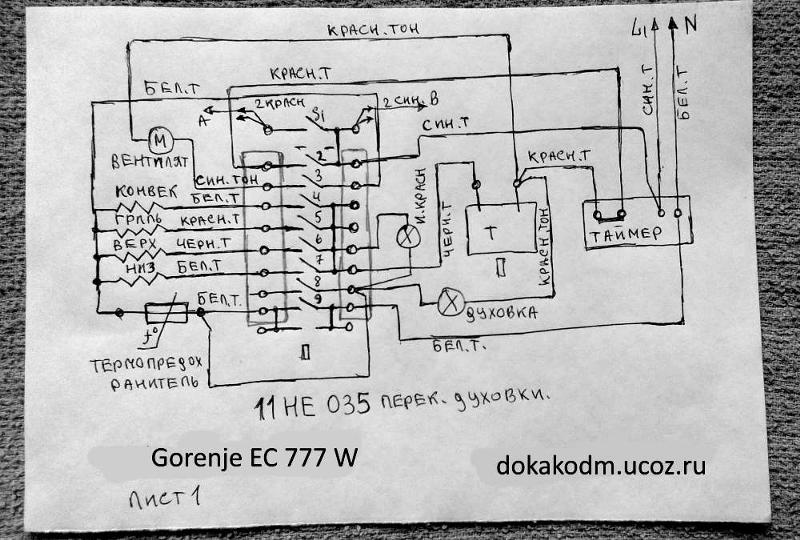 КРАСН. ТОН
L1 N
КРАСН.Т
БЕЛ.Т
2 КРАСН
2 СИН.В
А
S1
СИН.Т
СИН.Т
БЕЛ.Т
М
ВЕНТИЛЯТ
2
КРАСН.Т
СИН.ТОН
3
КОНВЕК
БЕЛ.Т
4
И.КРАСН
ГРИЛЬ
КРАСН.Т
5
ЧЕРН.Т
Т
ТАЙМЕР
ВЕРХ
ЧЕРН.Т
6
КРАСН.ТОН
НИЗ
БЕЛ.Т
7
П
8
БЕЛ.Т.
9
ДУХОВКА
t°
БЕЛ.Т.
ТЕРМОПРЕДОХ
РАНИТЕЛЬ
П
11 НЕ 035 ПЕРЕК. ДУХОВКИ.
Gorenje EC 777 W
dokakodm.ucoz.ru
ЛИСТ 1